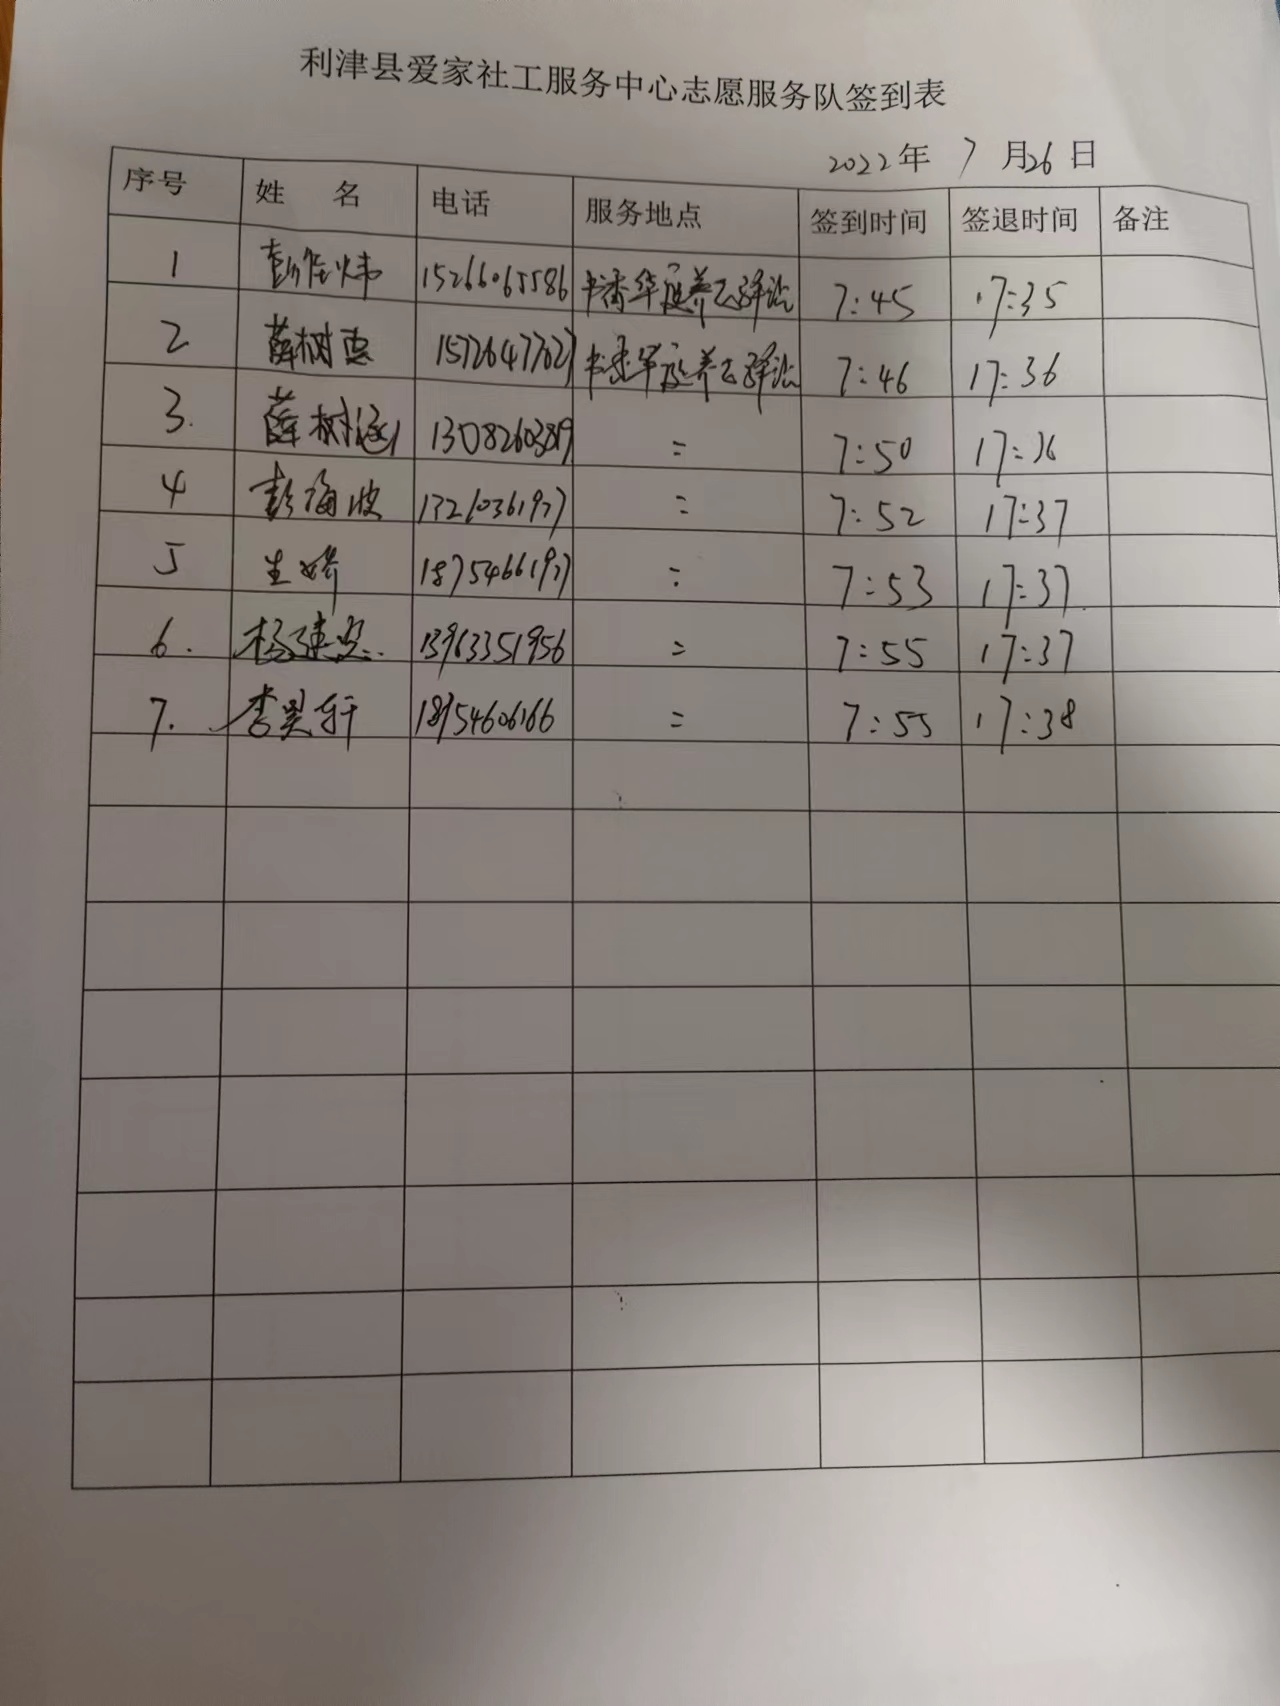 利津县爱家社工服务中心志愿服务队签到表
2022年 7 月26日
序号 姓 名 电话 服务地点 签到时间 签退时间 备注
1 彭佳炜 15266065586 书香华庭养老驿站 7:45 17:35
2 薛树惠 书香华庭养老驿站 7:46 17:36
3. 薛树涵 13082603819 = 7:50 17:36
4 彭海波 = 7:52 17:37
5 生娇 18754661977 = 7:53 17:37
6. 13963351956 = 7:55 17:37
7. 李昊轩 18954606166 = 7:55 17:38